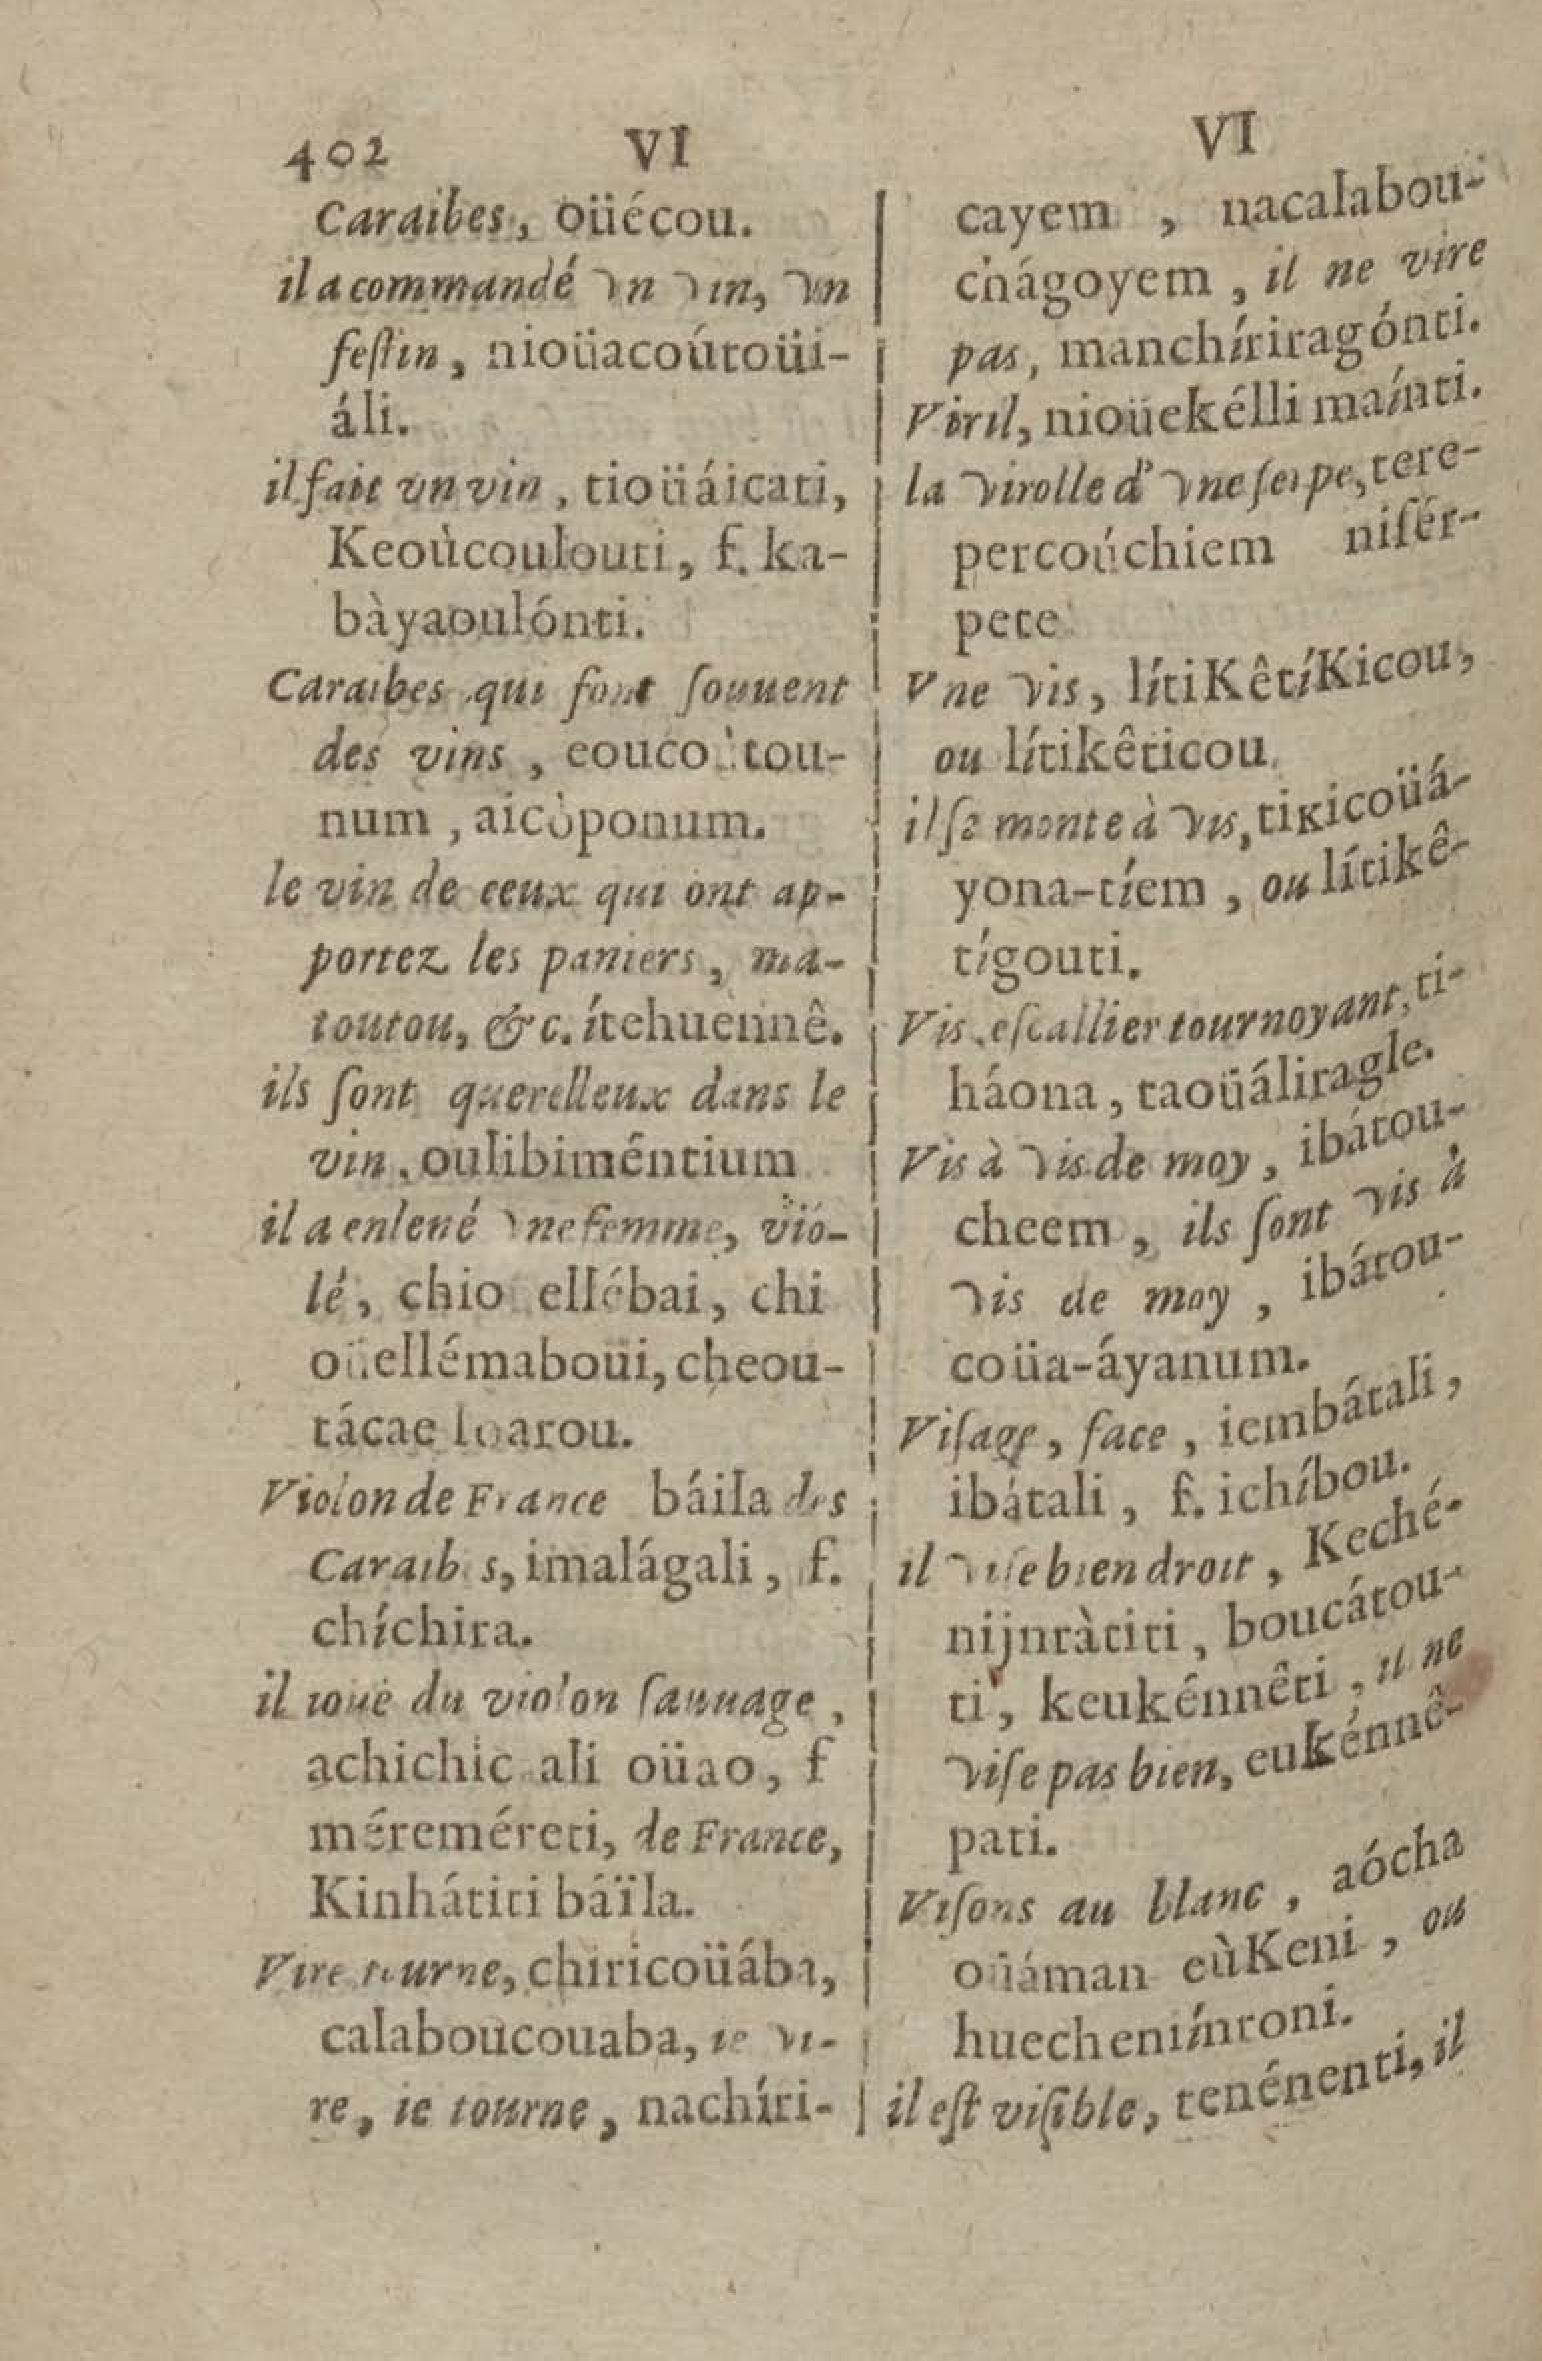 402 VI
Caraibes, oüécou.
il a commandé vn vin, vn
festin, nioüacoútoüi-
áli.
il fait vn vin, tioüáicati,
Keoùcoulouti, f. ka-
bàyaoulónti.
Caraibes qui font souuent
des vins, eouco tou-
num, aicòponum.
le vin de ceux qui ont ap-
portez les paniers, ma-
toutou, &c. ítehuennê.
ils sont querelleux dans le
vin, oulibiméntium
il a enleué vne femme, vio-
lé, chio ellébai, chi
oüellémaboüi, cheou-
tácae loarou.
Violon de France báila des
Caraib s, imalágali, f.
chíchira.
il ioue du violon sauuage,
achichic ali oüao, f
méreméreti, de France,
Kinhátiti báïla.
Vire tourne, chiricoüába,
calaboucouaba, ie vi-
re, ie tourne, nachíri-
VI
cayem, nacalabou-
chágoyem, il ne vire
pas, manchíriragónti.
Viril, nioüekélli maínti.
la virolle d'vne serpe, tere-
percoúchiem nisér-
pete
Vne vis, lítiKêtíKicou,
ou lítikêticou.
il se monte à vis, tikicoüá-
yona-tíem, ou lítikê-
tígouti.
Vis, escallier tournoyant, ti-
háona, taoüáliragle.
Vis à vis de moy, ibátou-
cheem, ils sont vis à
vis de moy, ibátou-
coüa-áyanum.
Visage, face, iembátali,
ibátali, f. ichíbou.
il vise bien droit, Keché-
nijntàtiti, boucátou-
ti, keukénnêti, il ne
vise pas bien, eukénnê-
pati.
Visons au blanc, aócha
oüáman eùKeni, ou
huechenímroni.
il est visible, tenénenti, il